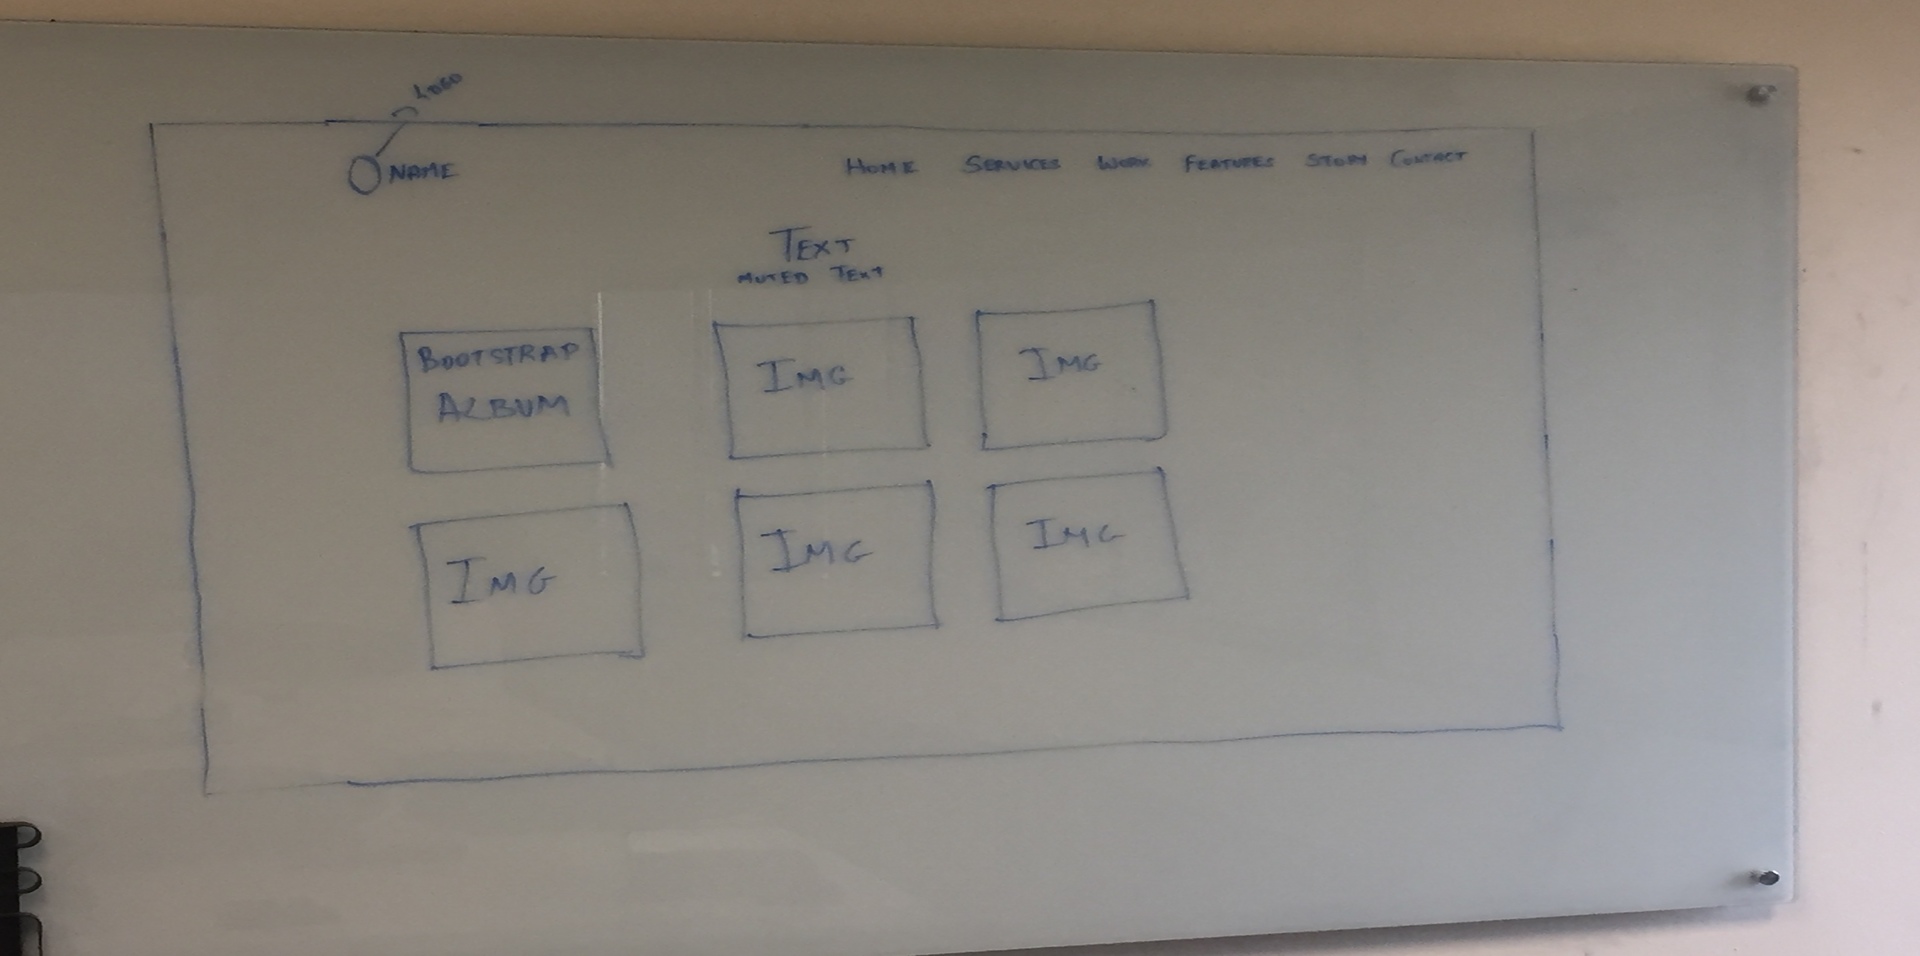 LOGO
NAME
HOME SERVICES WORK FEATURES STORY CONTACT
TEXT
MUTED TEXT
BOOTSTRAP
ALBUM
IMG
IMG
IMG
IMG
IMG